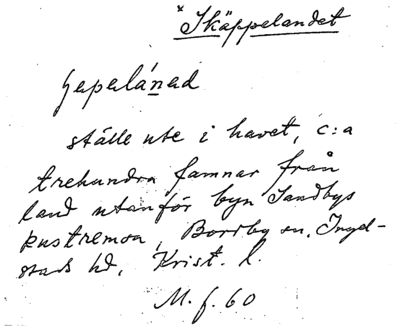 *Skäppelandet
ställe ute i havet, c:a
trehundra famnar från
land utanför byn Sandbys
kustremsa, Borrby sn. Ingel-
stads hd, Krist. l.
M. f. 60